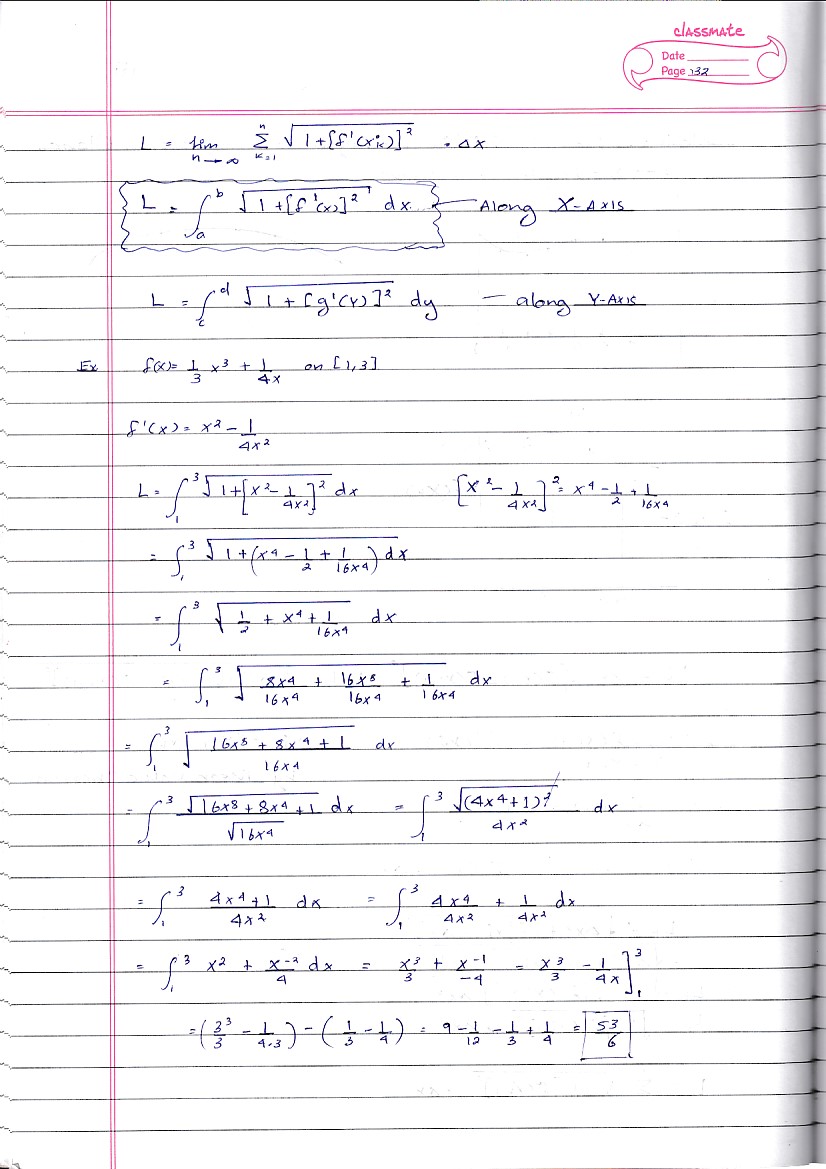 classmate
Date
Page 132
L = lim n→∞ Σ k=1 n √(1+[f'(x*k)]²) · Δx
L = ∫ₐᵇ √(1+[f'(x)]²) dx ← Along X-Axis
L = ∫_c^d √(1+[g'(y)]²) dy — along Y-Axis
Ex f(x)= 1/3 x³ + 1/4x on [1,3]
f'(x) = x² - 1/4x²
L = ∫₁³ √(1+[x² - 1/4x²]²) dx [x² - 1/4x²]² = x⁴ - 1/2 + 1/16x⁴
= ∫₁³ √(1+(x⁴ - 1/2 + 1/16x⁴)) dx
= ∫₁³ √(1/2 + x⁴ + 1/16x⁴) dx
= ∫₁³ √(8x⁴/16x⁴ + 16x⁸/16x⁴ + 1/16x⁴) dx
= ∫₁³ √((16x⁸ + 8x⁴ + 1)/16x⁴) dx
= ∫₁³ √(16x⁸ + 8x⁴ + 1)/√(16x⁴) dx = ∫₁³ √((4x⁴+1)²)/4x² dx
= ∫₁³ (4x⁴+1)/4x² dx = ∫₁³ 4x⁴/4x² + 1/4x² dx
= ∫₁³ x² + x⁻²/4 dx = x³/3 + x⁻¹/-4 = x³/3 - 1/4x ]₁³
= (3³/3 - 1/4·3) - (1/3 - 1/4) = 9 - 1/12 - 1/3 + 1/4 = 53/6